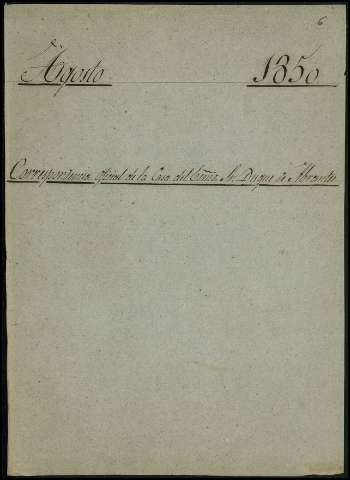 6
Agosto 1850
Correspondencia oficial de la Casa del Exmo. Sr. Duque de Abrantes